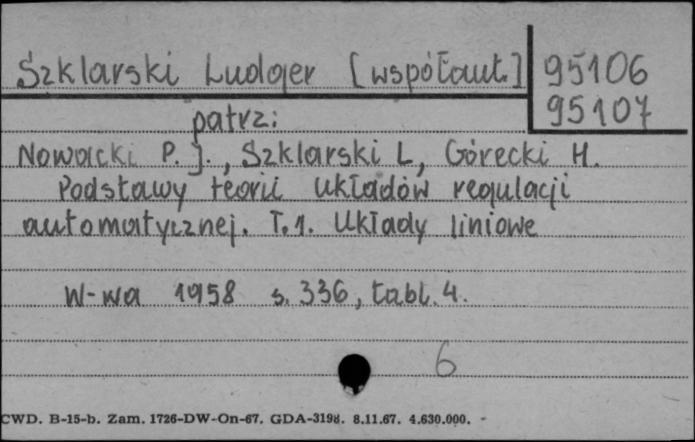 Szklarski Ludger [współaut.] 95106
95107
patrz:
Nowacki P. J., Szklarski L, Górecki H.
Podstawy teorii układów regulacji
automatycznej. T.1. Układy liniowe
W-wa 1958 s. 336, tabl. 4.
6
CWD. B-15-b. Zam. 1726-DW-On-67. GDA-3198. 8.11.67. 4.630.000.